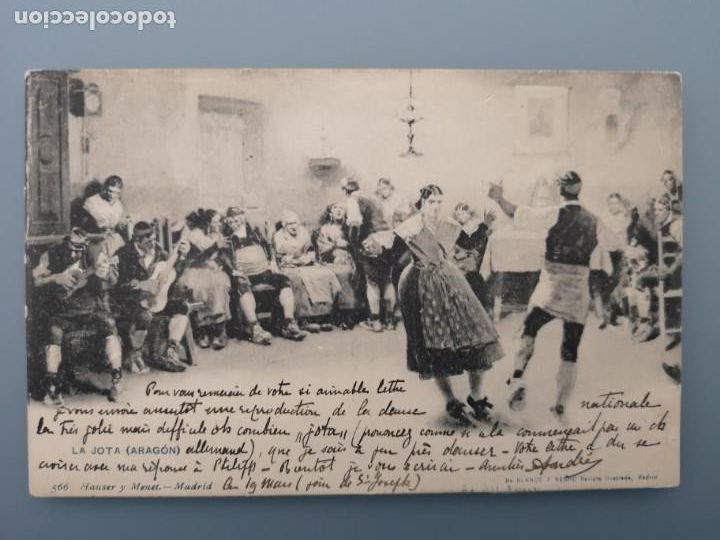 todocoleccion
Pour vous remercier de votre si aimable lettre
je vous envoie aussitôt une reproduction de la danse nationale
la très jolie mais difficile oh combien „jota„ (prononcez comme si ela commençait par un ch
LA JOTA (ARAGÓN) allemand), que je sais à peu près danser - Votre lettre a du se
croiser avec ma réponse à Philipp - Bientôt je vous écrirai - Amitiés André
566 Hauser y Menet.- Madrid Ce 19 Mars (soir de St Joseph)
De BLANCO Y NEGRO Revista Ilustrada, Madrid